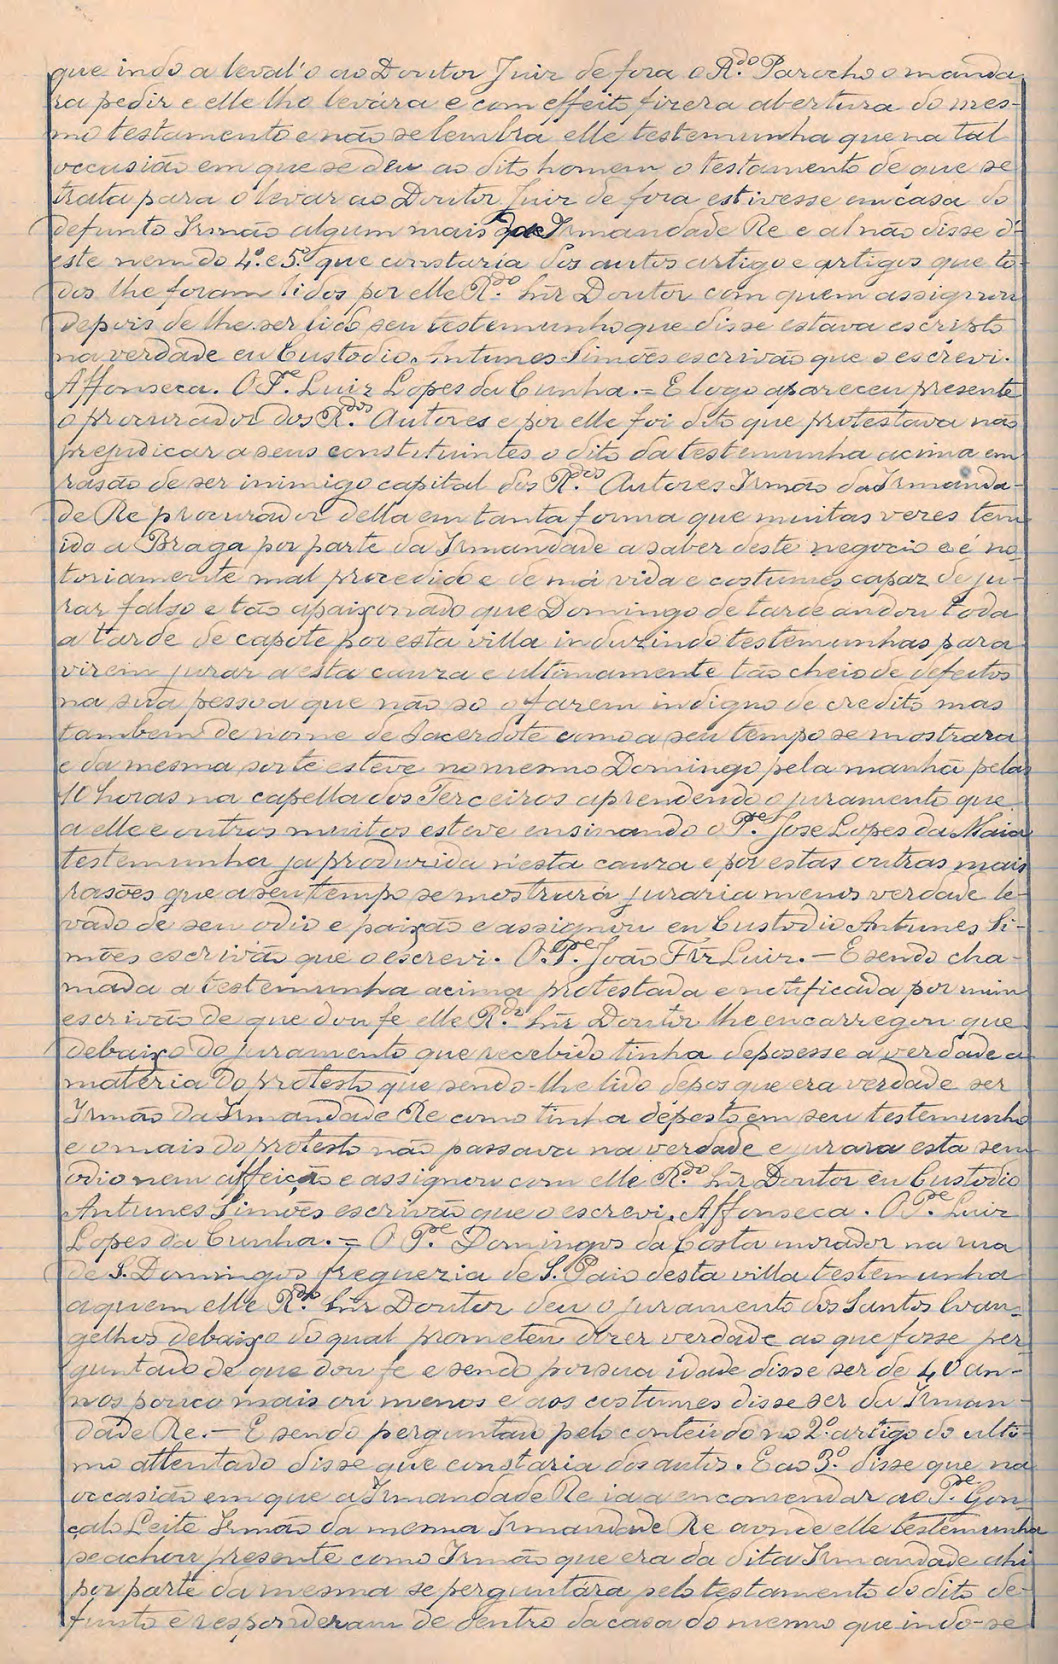 que indo a leval'o ao Doutor Juiz de fora o R.do Parocho o manda
ra pedir e elle lho levára e com effeito fizera abertura do mes-
mo testamento e não se lembra elle testemunha que na tal
occasião em que se deu ao dito homem o testamento de que se
trata para o levar ao Doutor Juiz de fora estivesse em casa do
defunto Irmão algum mais da Irmandade Re e al não disse d'
este nem do 4.º e 5.º que constaria dos autos artigo e artigos que to-
dos lhe foram lidos por elle R.do Snr Doutor com quem assignou
depois de lhe ser lido seu testemunho que disse estava escripto
na verdade eu Custodio Antunes Simões escrivão que o escrevi.
Affonseca. O P.e Luiz Lopes da Cunha. = E logo apareceu presente
o procurador dos R.dos Autores e por elle foi dito que protestava não
prejudicar a seus constituintes o dito da testemunha acima em
rasão de ser inimigo capital dos R.dos Autores Irmão da Irmanda-
de Re procurador della em tanta forma que muitas vezes tem
ido a Braga por parte da Irmandade a saber deste negocio e é no-
toriamente mal procedido e de má vida e costumes capaz de ju-
rar falso e tão apaixonado que Domingo de tarde andou toda
a tarde de capote por esta villa induzindo testemunhas para
virem jurar a esta cauza e ultimamente tão cheio de defeitos
na sua pessoa que não so o fazem indigno de credito mas
tambem de nome de Sacerdote como a seu tempo se mostrara
e da mesma sorte esteve no mesmo Domingo pela manhã pelas
10 horas na capella dos Terceiros aprendendo o juramento que
a elle e outros muitos esteve ensinando o P.e Jose Lopes da Maia
testemunha ja produzida n'esta cauza e por estas outras mais
rasões que a seu tempo se mostrará juraria menos verdade le-
vado de seu odio e paixão e assignou eu Custodio Antunes Si-
mões escrivão que o escrevi. O P.e João Frz Luiz. — E sendo cha-
mada a testemunha acima protestada e notificada por mim
escrivão de que dou fe elle R.do Snr Doutor lhe encarregou que
debaixo do juramento que recebido tinha deposesse a verdade a
materia do protesto que sendo-lhe lido depos que era verdade ser
Irmão da Irmandade Re como tinha deposto em seu testemunho
e o mais do protesto não passava na verdade e jurara esta sem
odio nem affeição e assignou com elle R.do Snr Doutor eu Custodio
Antunes Simões escrivão que o escrevi. Affonseca. O P.e Luiz
Lopes da Cunha. = O P.e Domingos da Costa morador na rua
de S. Domingos freguezia de S. Paio desta villa testemunha
a quem elle R.do Snr Doutor deu o juramento dos Santos Evan-
gelhos debaixo do qual prometeu dizer verdade ao que fosse per
guntado de que dou fe e sendo por sua idade disse ser de 40 an-
nos pouco mais ou menos e aos costumes disse ser da Irman-
dade Re. — E sendo perguntado pelo conteúdo no 2.º artigo do ulti-
mo attentado disse que constaria dos autos. E ao 3.º disse que na
occasião em que a Irmandade Re ia a encomendar ao P.e Gon-
çalo Leite Irmão da mesma Irmandade Re aonde elle testemunha
se achou presente como Irmão que era da dita Irmandade ahi
por parte da mesma se perguntára pelo testamento do dito de-
funto e responderam de dentro da casa do mesmo que indo-se